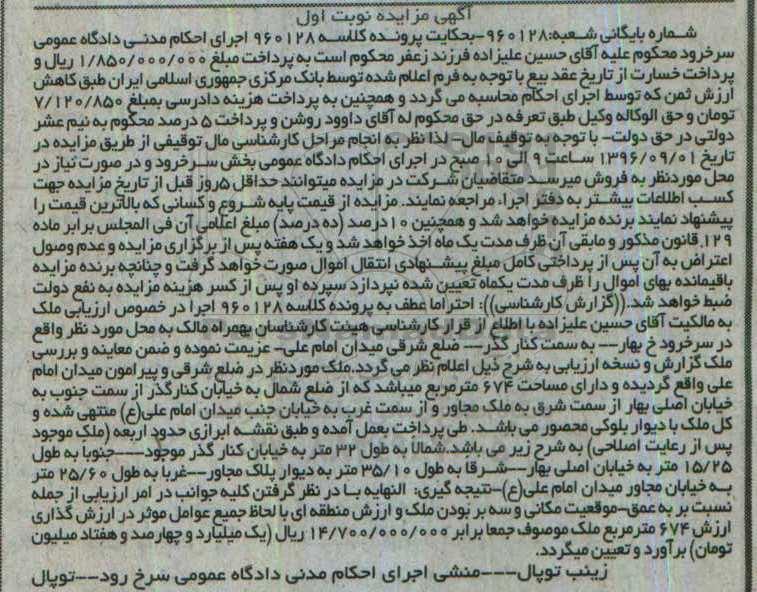 آگهی مزایده نوبت اول
شماره بایگانی شعبه:۹۶۰۱۲۸-بحکایت پرونده کلاسه ۹۶۰۱۲۸ اجرای احکام مدنی دادگاه عمومی
سرخرود محکوم علیه آقای حسین علیزاده فرزند زعفر محکوم است به پرداخت مبلغ ۱/۸۵۰/۰۰۰/۰۰۰ ریال و
پرداخت خسارت از تاریخ عقد بیع با توجه به فرم اعلام شده توسط بانک مرکزی جمهوری اسلامی ایران طبق کاهش
ارزش ثمن که توسط اجرای احکام محاسبه می گردد و همچنین به پرداخت هزینه دادرسی بمبلغ ۷/۱۲۰/۸۵۰
تومان و حق الوکاله وکیل طبق تعرفه در حق محکوم له آقای داوود روشن و پرداخت ۵ درصد محکوم به نیم عشر
دولتی در حق دولت- با توجه به توقیف مال- لذا نظر به انجام مراحل کارشناسی مال توقیفی از طریق مزایده در
تاریخ ۱۳۹۶/۰۹/۰۱ ساعت ۹ الی ۱۰ صبح در اجرای احکام دادگاه عمومی بخش سرخرود و در صورت نیاز در
محل موردنظر به فروش میرسد متقاضیان شرکت در مزایده میتوانند حداقل ۵روز قبل از تاریخ مزایده جهت
کسب اطلاعات بیشتر به دفتر اجراء مراجعه نمایند. مزایده از قیمت پایه شروع و کسانی که بالاترین قیمت را
پیشنهاد نمایند برنده مزایده خواهد شد و همچنین ۱۰درصد (ده درصد) مبلغ اعلامی آن فی المجلس برابر ماده
۱۲۹ قانون مذکور و مابقی آن ظرف مدت یک ماه اخذ خواهد شد و یک هفته پس از برگزاری مزایده و عدم وصول
اعتراض به آن پس از پرداختی کامل مبلغ پیشنهادی انتقال اموال صورت خواهد گرفت و چنانچه برنده مزایده
باقیمانده بهای اموال را ظرف مدت یکماه تعیین شده نپردازد سپرده او پس از کسر هزینه مزایده به نفع دولت
ضبط خواهد شد.((گزارش کارشناسی)): احتراما عطف به پرونده کلاسه ۹۶۰۱۲۸ اجرا در خصوص ارزیابی ملک
به مالکیت آقای حسین علیزاده با اطلاع از قرار کارشناسی هیئت کارشناسان بهمراه مالک به محل مورد نظر واقع
در سرخرود خ بهار-- به سمت کنار گذر-- ضلع شرقی میدان امام علی- عزیمت نموده و ضمن معاینه و بررسی
ملک گزارش و نسخه ارزیابی به شرح ذیل اعلام نظر می گردد.ملک موردنظر در ضلع شرقی و پیرامون میدان امام
علی واقع گردیده و دارای مساحت ۶۷۴ مترمربع میباشد که از ضلع شمال به خیابان کنارگذر از سمت جنوب به
خیابان اصلی بهار از سمت شرق به ملک مجاور و از سمت غرب به خیابان جنب میدان امام علی(ع) منتهی شده و
کل ملک با دیوار بلوکی محصور می باشد. طی پرداخت بعمل آمده و طبق نقشه ابرازی حدود اربعه (ملک موجود
پس از رعایت اصلاحی) به شرح زیر می باشد.شمالا به طول ۳۲ متر به خیابان کنار گذر موجود---جنوبا به طول
۱۵/۲۵ متر به خیابان اصلی بهار--شرقا به طول ۳۵/۱۰ متر به دیوار پلاک مجاور--غربا به طول ۲۵/۶۰ متر
به خیابان مجاور میدان امام علی(ع)-نتیجه گیری: النهایه با در نظر گرفتن کلیه جوانب در امر ارزیابی از جمله
نسبت بر به عمق-موقعیت مکانی و سه بر بودن ملک و ارزش منطقه ای با لحاظ جمیع عوامل موثر در ارزش گذاری
ارزش ۶۷۴ متر مربع ملک موصوف جمعا برابر ۱۴/۷۰۰/۰۰۰/۰۰۰ ریال (یک میلیارد و چهارصد و هفتاد میلیون
تومان) برآورد و تعیین میگردد.
زینب توپال---منشی اجرای احکام مدنی دادگاه عمومی سرخ رود--توپال